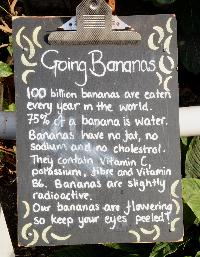 Going Bananas
100 billion bananas are eaten
every year in the world.
75% of a banana is water.
Bananas have no fat, no
sodium and no cholestrol.
They contain Vitamin C,
potassium, fibre and Vitamin
B6. Bananas are slightly
radioactive.
Our bananas are flowering
so keep your eyes peeled!